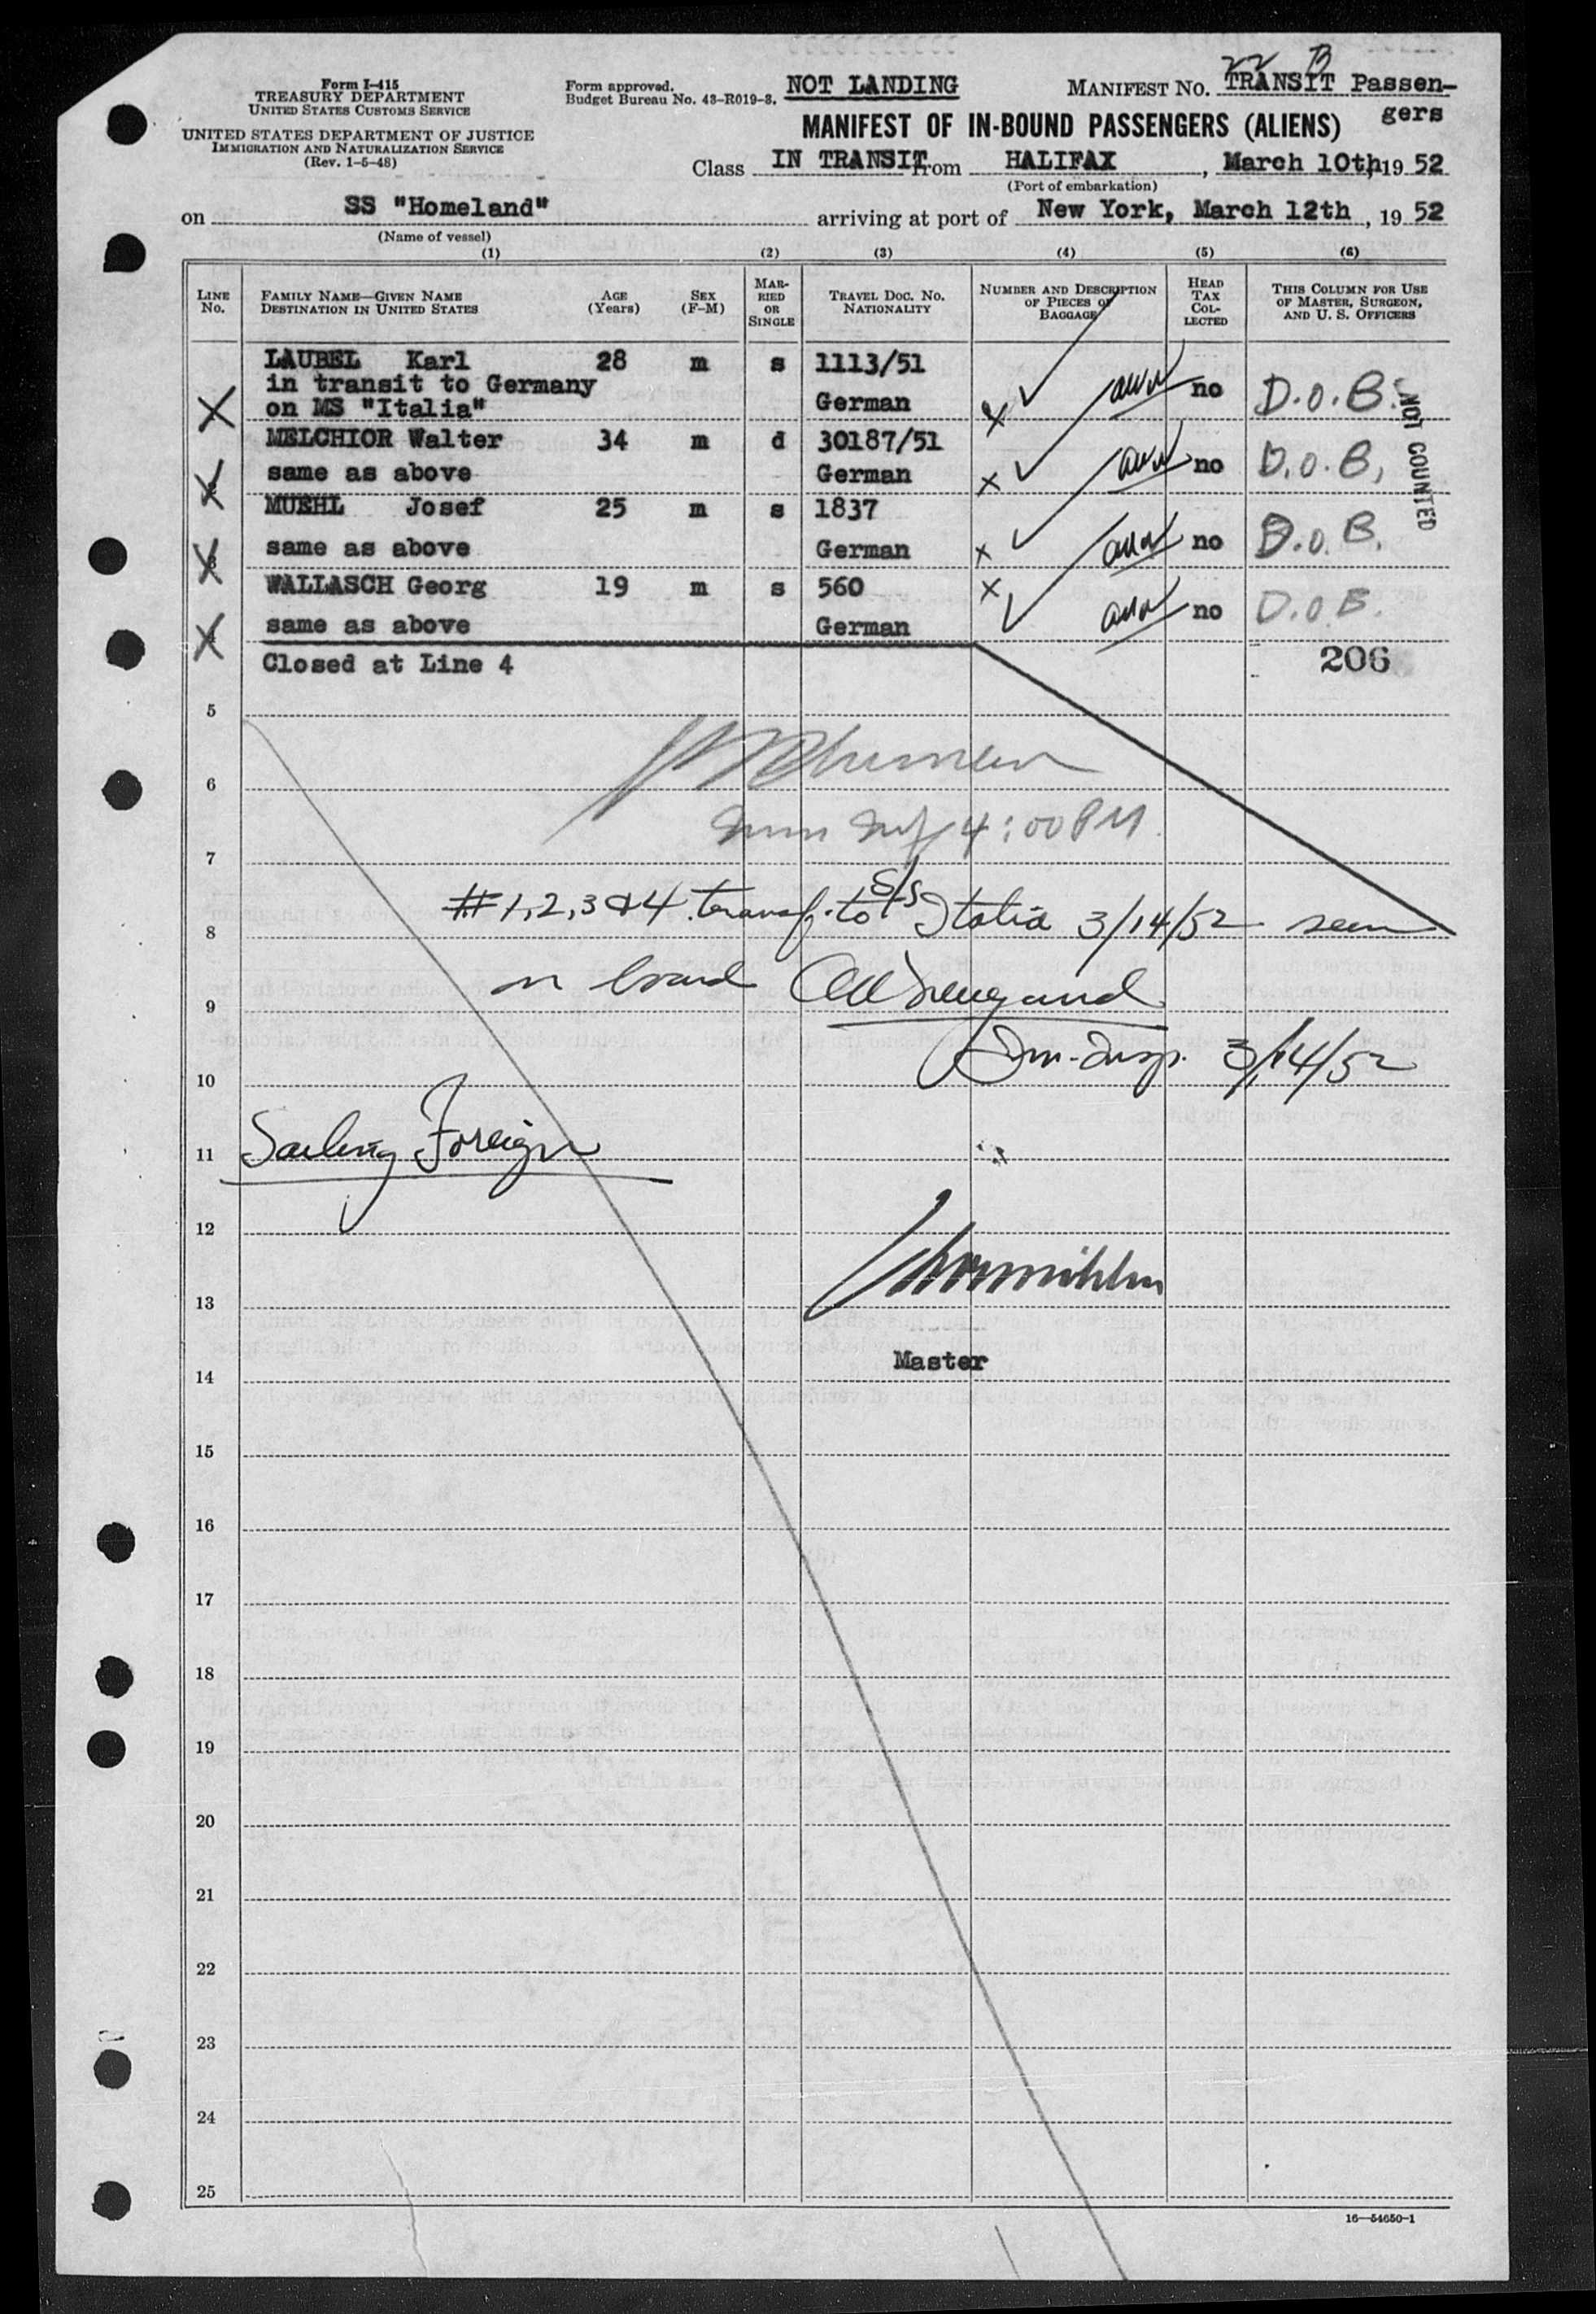 22 B
Form I-415
TREASURY DEPARTMENT
UNITED STATES CUSTOMS SERVICE
UNITED STATES DEPARTMENT OF JUSTICE
IMMIGRATION AND NATURALIZATION SERVICE
(Rev. 1-5-48)
Form approved.
Budget Bureau No. 43-R019-3.
NOT LANDING
MANIFEST NO. TRANSIT Passen-
gers
MANIFEST OF IN-BOUND PASSENGERS (ALIENS)
Class IN TRANSIT from HALIFAX, March 10th, 1952
(Port of embarkation)
on SS "Homeland" arriving at port of New York, March 12th, 1952
(Name of vessel)
(1) (2) (3) (4) (5) (6)
LINE No. FAMILY NAME—GIVEN NAME DESTINATION IN UNITED STATES AGE (Years) SEX (F-M) MARRIED OR SINGLE TRAVEL DOC. NO. NATIONALITY NUMBER AND DESCRIPTION OF PIECES OF BAGGAGE HEAD TAX COLLECTED THIS COLUMN FOR USE OF MASTER, SURGEON, AND U. S. OFFICERS
LAUBEL Karl 28 m s 1113/51
in transit to Germany
on MS "Italia" German no D.O.B.
MELCHIOR Walter 34 m d 30187/51
same as above German no D.O.B.
MUEHL Josef 25 m s 1837
same as above German no D.O.B.
WALLASCH Georg 19 m s 560
same as above German no D.O.B.
NOT COUNTED
Closed at Line 4 206
5
6
4:00 PM
7
# 1, 2, 3 & 4 transf. to S/S Italia 3/14/52 seen
8
on board
9
Imm. Insp. 3/14/52
10
11 Sailing Foreign
12
13
Master
14
15
16
17
18
19
20
21
22
23
24
25
16—54650-1